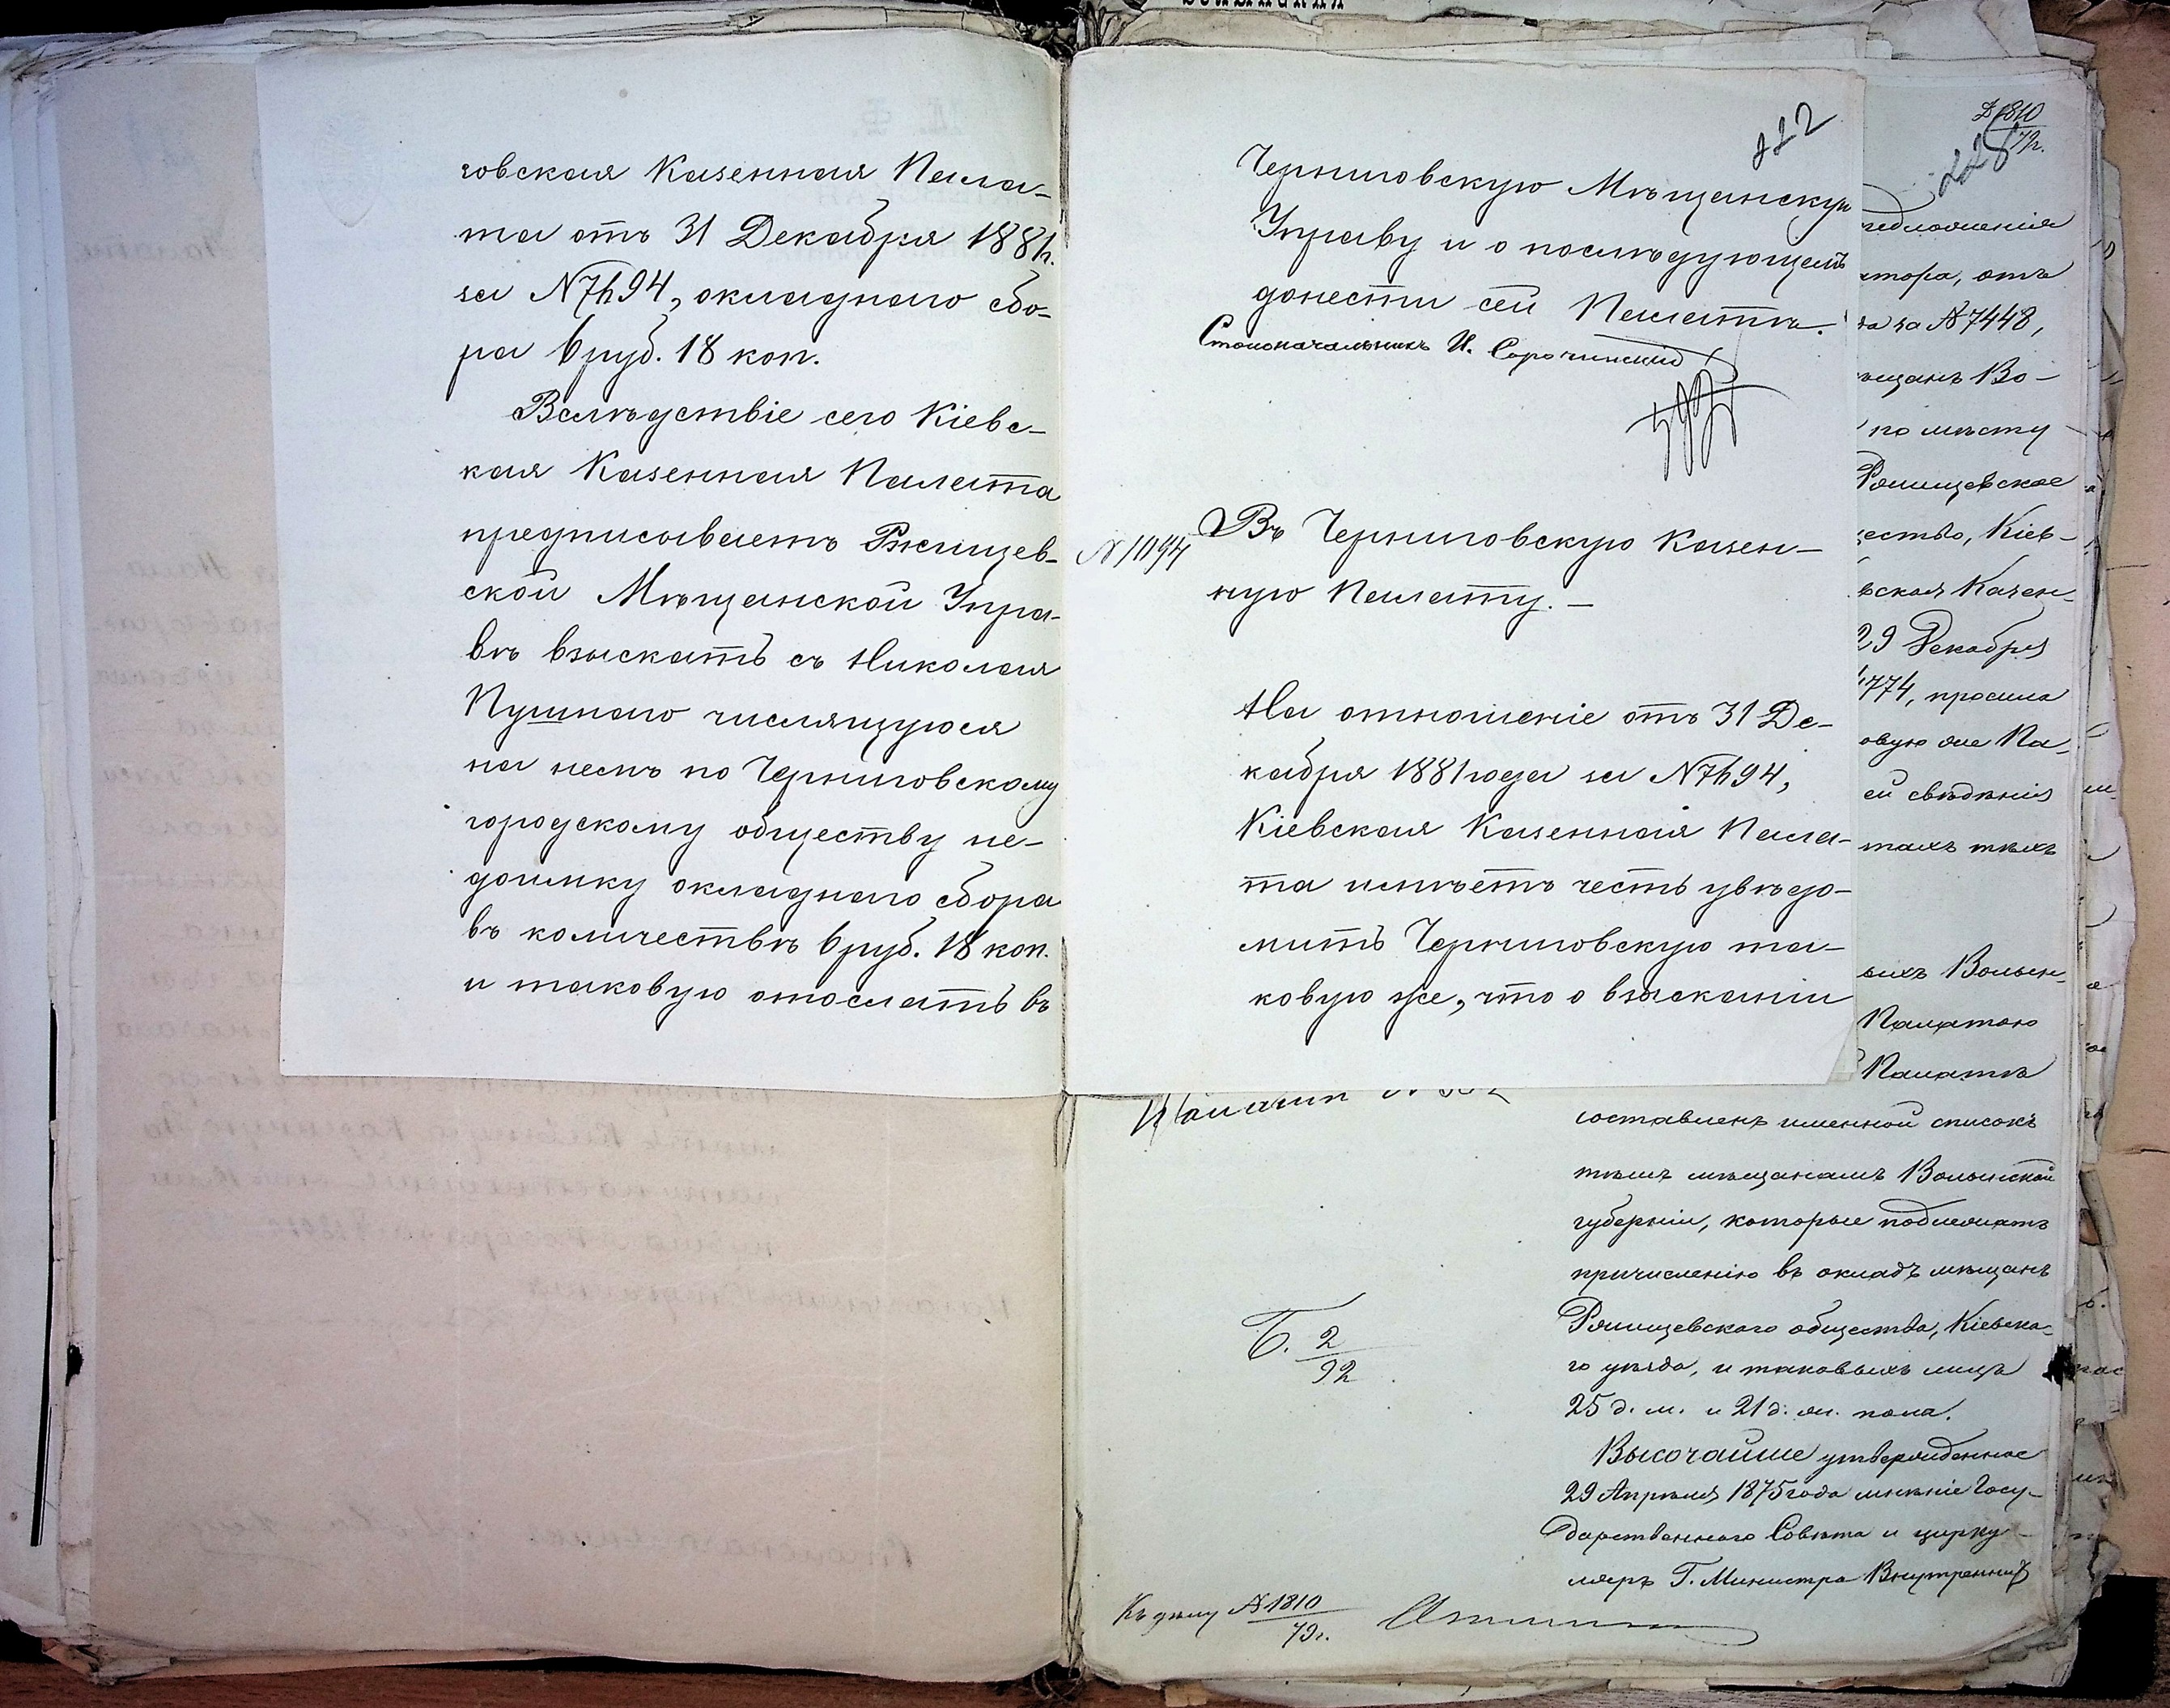 говская Казенная Пала-
та отъ 31 Декабря 1881г.
за N7494, окладнаго сбо-
ра 6 руб. 18 коп.
Вслѣдствіе сего Кіевс-
кая Казенная Палата
предписываетъ Ржищев-
ской Мѣщанской Упра-
вѣ взыскать съ Николая
Пушнаго числящуюся
на немъ по Черниговскому
городскому обществу не-
доимку окладнаго сбора
въ количествѣ 6 руб. 18 коп.
и таковую отослать въ
222
Черниговскую Мѣщанскую
Управу и о послѣдующемъ
донести сей Палатѣ.
Столоначальникъ И. Сорочинскій
N1094
Въ Черниговскую Казен-
ную Палату. —
На отношеніе отъ 31 Де-
кабря 1881 года за N7494,
Кіевская Казенная Пала-
та имѣетъ честь увѣдо-
мить Черниговскую та-
ковую же, что о взысканіи
228
отъ
за N 7448,
мѣщанъ Во-
по мѣсту
Ржищевское
Кіев-
Казен-
29 Декабря
просила
Па-
свѣдѣнія
тѣхъ
Волын-
Палатою
Палатѣ
составленъ именной списокъ
тѣмъ мѣщанамъ Волынской
губерніи, которые подлежатъ
причисленію въ окладъ мѣщанъ
Ржищевскаго общества, Кіевска-
го уѣзда, и таковыхъ лицъ
25 д. м. и 21 д. ж. пола.
Высочайше утвержденное
29 Апрѣля 1875 года мнѣніе Госу-
дарственнаго Совѣта и цирку-
ляръ Г. Министра Внутреннихъ
Б. 2/92
Къ дѣлу N 1810/79 г.